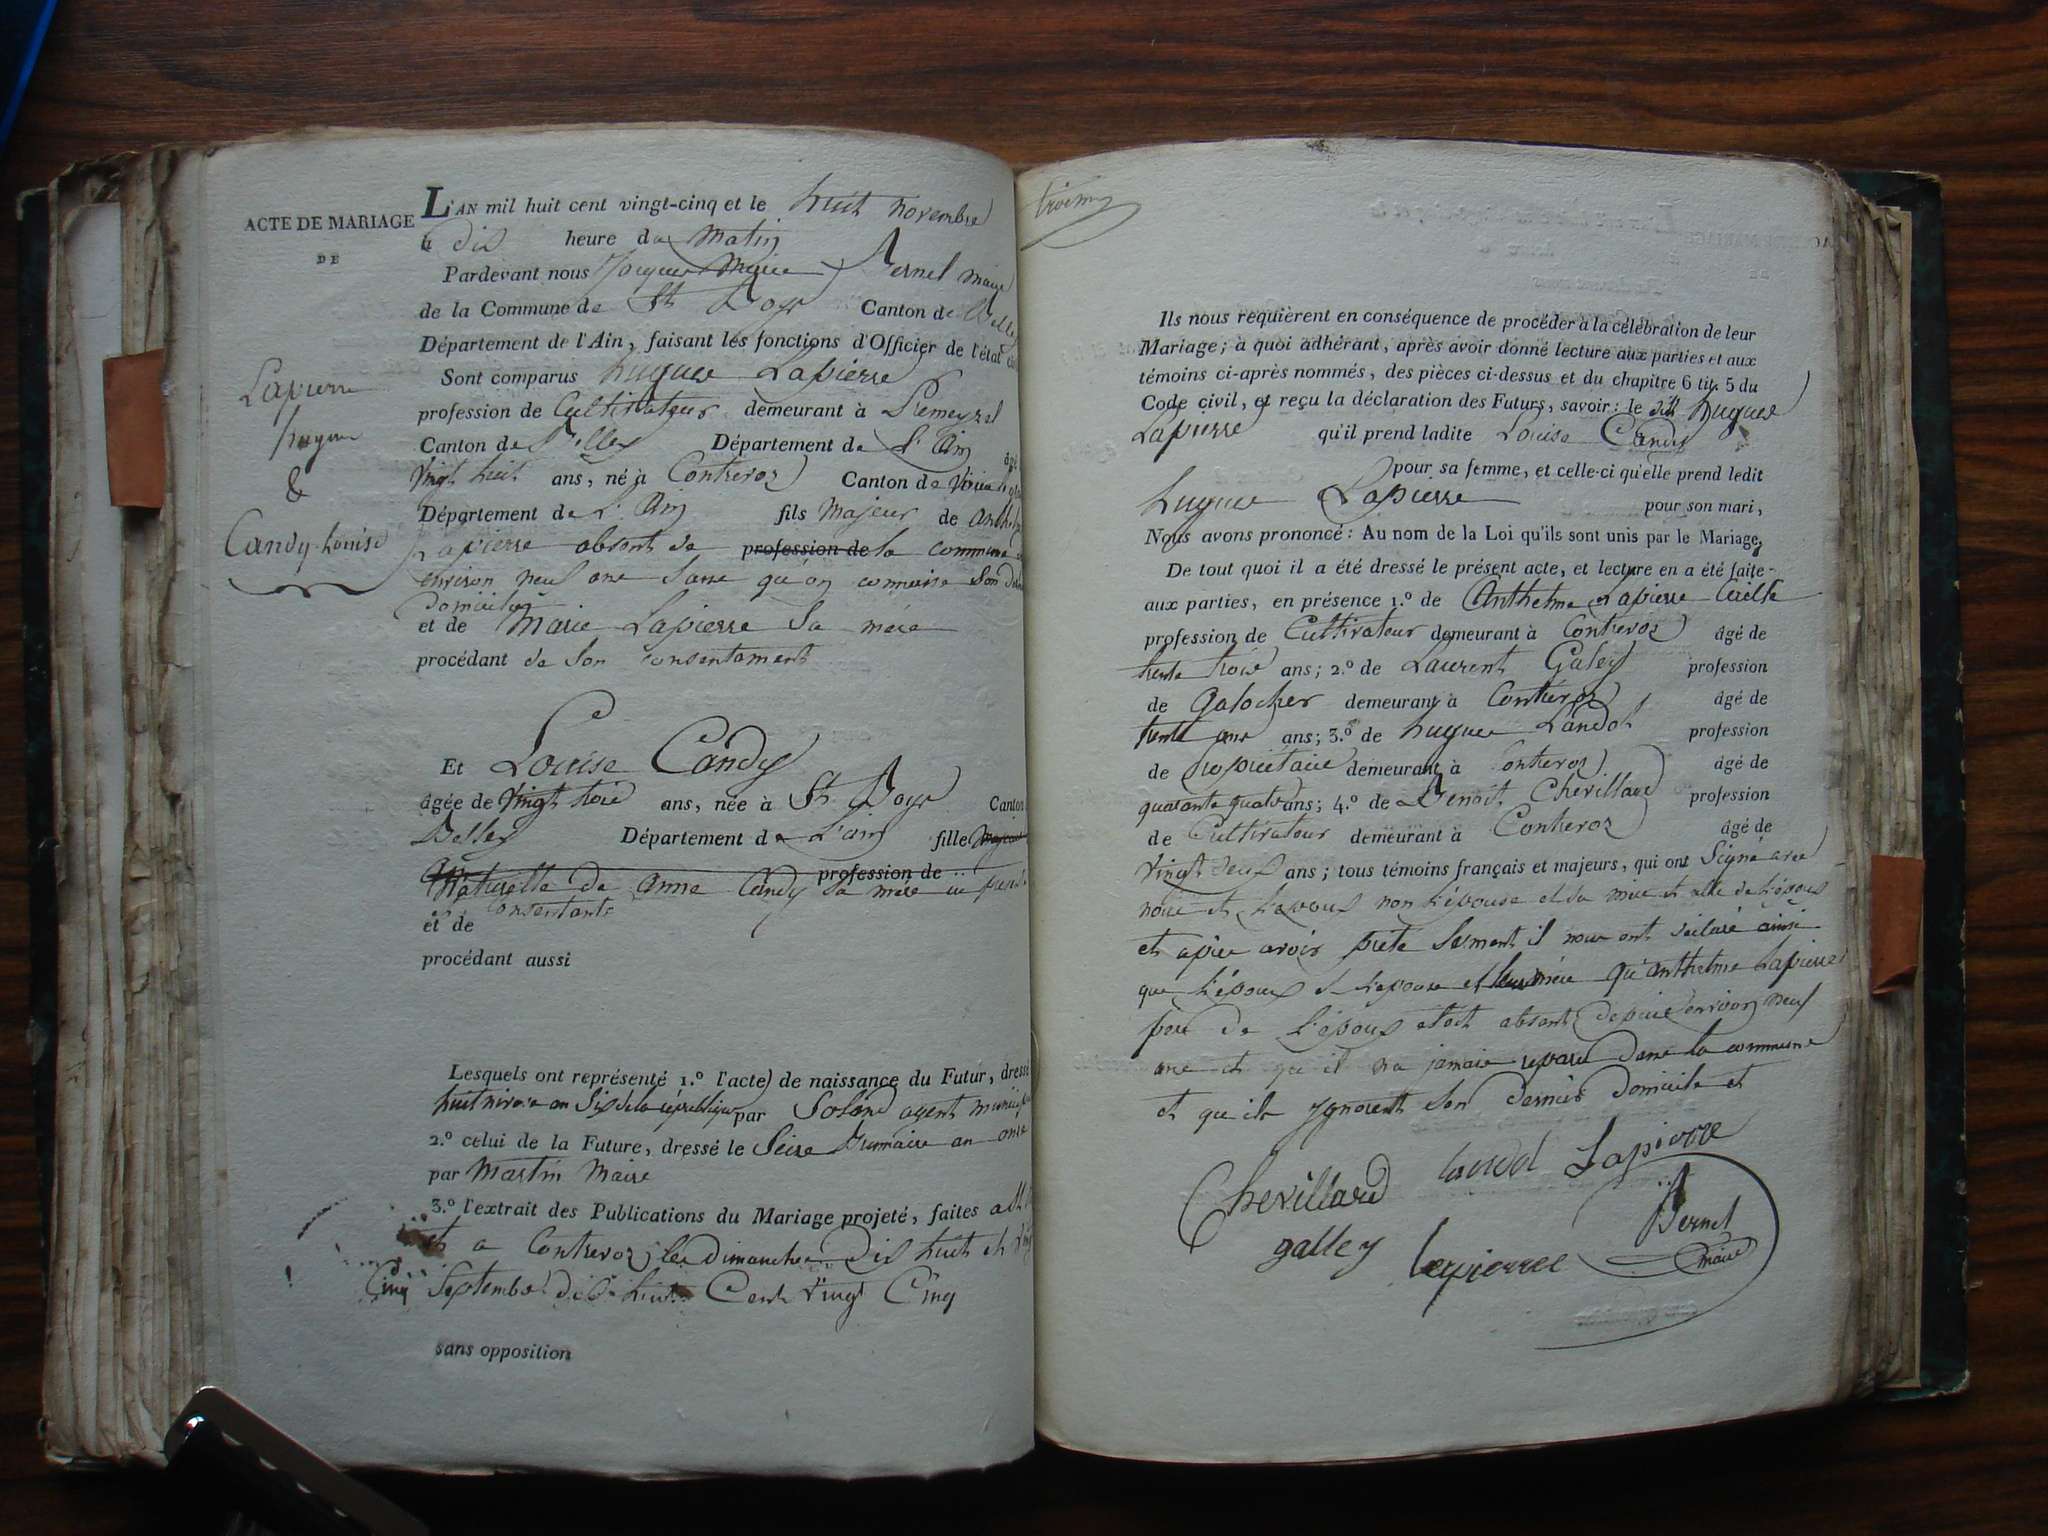 ACTE DE MARIAGE
DE
Lapierre
hugue
&
Candy Louise
L'AN mil huit cent vingt-cinq et le huit novembre
à dix heure du Matin
Pardevant nous Maire
de la Commune de St Canton de Belley
Département de l'Ain, faisant les fonctions d'Officier de l'état civil
Sont comparus hugue Lapierre
profession de Cultivateur demeurant à Premeyzel
Canton de Belley Département de L'Ain âgé
Vingt huit ans, né à Contrevoz Canton de
Département de L'Ain fils Majeur de Anthelme
Lapierre absent de profession de la commune
environ neuf ans sans qu'on connaisse Son
Domicile
et de Marie Lapierre Sa mère
procédant de Son consentament
Et Louise Candy
âgée de Vingt trois ans, née à St Canton
Belley Département de L'ain fille Majeure
profession de
Naturelle de anne Candy sa mère ici
Consentante
et de
procédant aussi
Lesquels ont représenté 1.º l'acte de naissance du Futur, dressé
huit nivose an Six de la république par agent municipal
2.º celui de la Future, dressé le Seize Brumaire an onze
par Martin Maire
3.º l'extrait des Publications du Mariage projeté, faites
et a Contrevoz les Dimanches Dix huit et Vingt
Cinq Septembre dix huit Cent Vingt Cinq
sans opposition
Ils nous requièrent en conséquence de procéder à la célébration de leur
Mariage; à quoi adhérant, après avoir donné lecture aux parties et aux
témoins ci-après nommés, des pièces ci-dessus et du chapitre 6 tit. 5 du
Code civil, et reçu la déclaration des Futurs, savoir: le dit hugue
Lapierre qu'il prend ladite Louise Candy
pour sa femme, et celle-ci qu'elle prend ledit
hugue Lapierre pour son mari,
Nous avons prononcé: Au nom de la Loi qu'ils sont unis par le Mariage,
De tout quoi il a été dressé le présent acte, et lecture en a été faite
aux parties, en présence 1.º de Anthelme Lapierre
profession de Cultivateur demeurant à Contrevoz âgé de
trente trois ans; 2.º de Laurent Galley profession
de Galocher demeurant à Contrevoz âgé de
trente ans; 3.º de hugue Landol profession
de Propriétaire demeurant à Contrevoz âgé de
quarante quatre ans; 4.º de Benoit Chevillard profession
de Cultivateur demeurant à Contrevoz âgé de
Vingt neuf ans; tous témoins français et majeurs, qui ont Signé avec
nous et L'époux non L'épouse et sa mère et celle de L'époux
et après avoir prété Serment il nous ont déclaré ainsi
que L'époux et L'épouse et leur mère qu'anthelme Lapierre
père de L'époux étoit absent depuis environ neuf
ans et qu'il n'a jamais reparu dans la commune
et qu'ils ygnorent Son dernier domicile et
Chevillard Landol Lapierre
galley Lapierre Bernet
maire